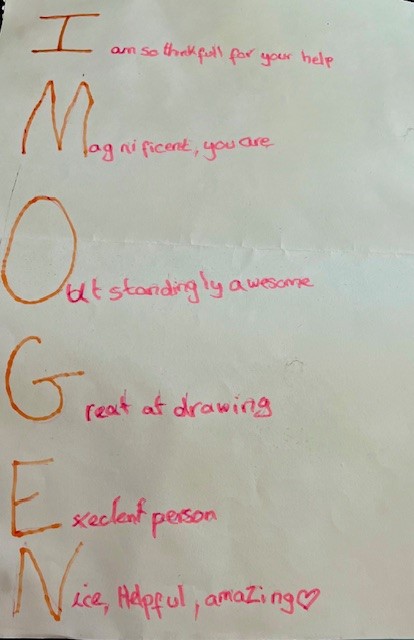 I am so thinkfull for your help
Magnificent, you are
Outstandingly awesome
Great at drawing
Execlent person
Nice, Helpful, amaZing♡